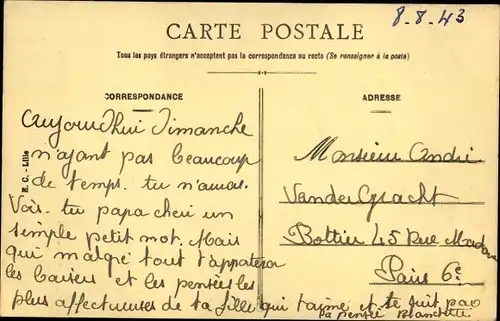 8.8.43
CARTE POSTALE
Tous les pays étrangers n'acceptent pas la correspondance au recto (Se renseigner à la poste)
CORRESPONDANCE
ADRESSE
E. C. - Lille
Aujourd'hui Dimanche
n'ayant pas beaucoup
de temps. tu n'auras
Vois. tu papa cheri un
simple petit mot. Mais
qui malgré tout t'apportera
les baisers et les pensées les
plus affectueuses de ta fille qui t'aime et te
la pensée Blanchette
Monsieur André
VanderGracht
Bottier 45 Rue
Paris 6e